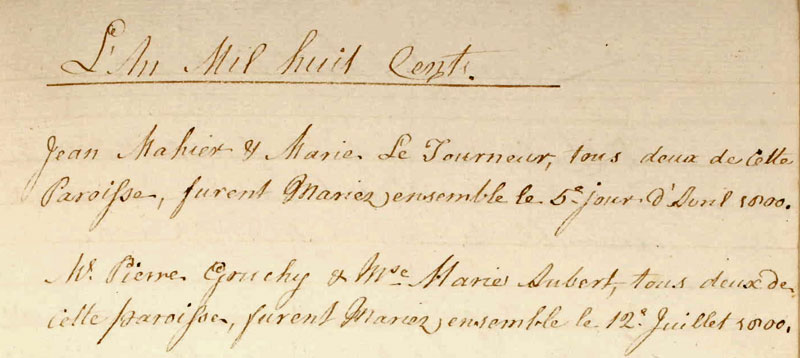 L'An Mil huit Cents.
Jean Mahier & Marie Le Tourneur, tous deux de Cette
Paroisse, furent Mariez ensemble le 5e jour d'Avril 1800.
Mr. Pierre Gruchy & Mse Marie Aubert, tous deux de
cette paroisse, furent Mariez ensemble le 12e Juillet 1800.